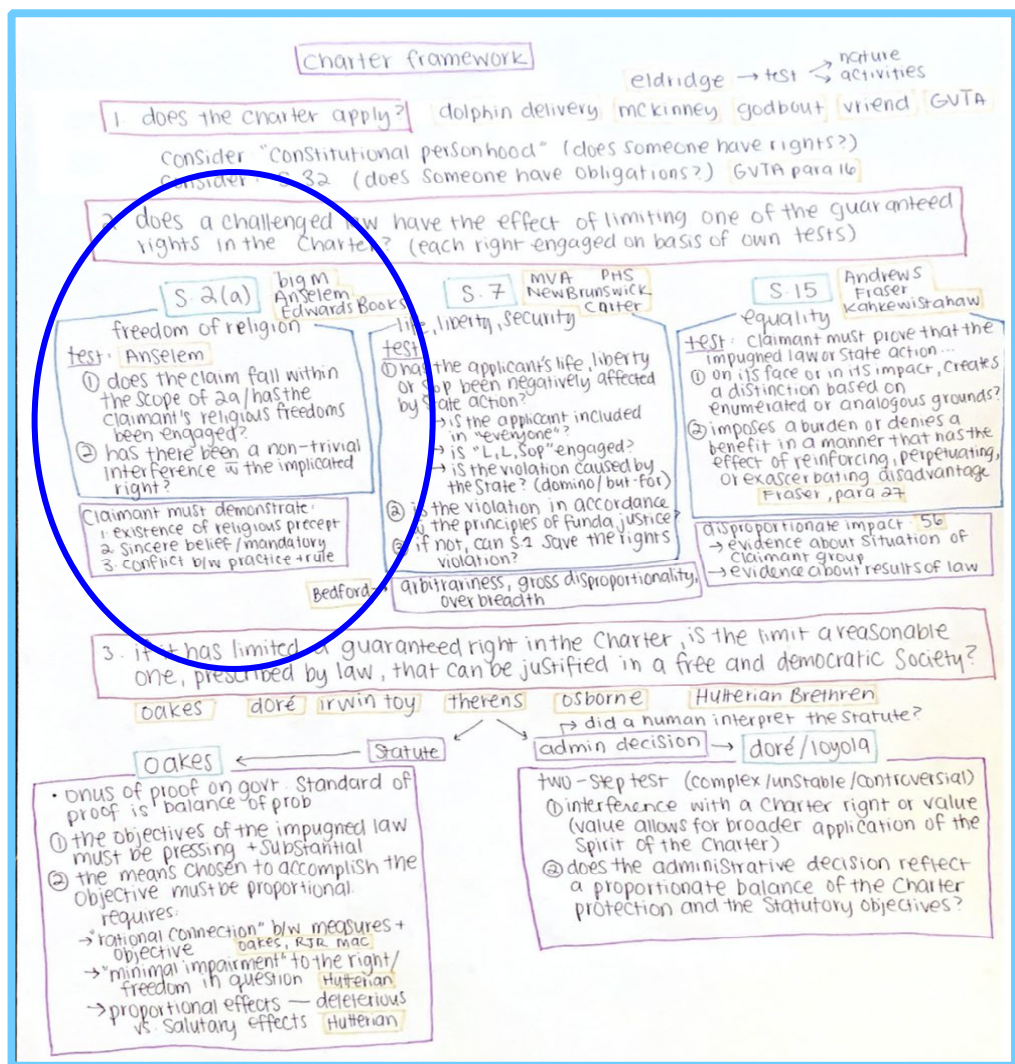 charter framework
eldridge → test
nature
activities
1. does the charter apply?
dolphin delivery mckinney godbout vriend GVTA
consider "constitutional personhood" (does someone have rights?)
consider · S.32 (does someone have obligations?) GVTA para 16
2. does a challenged law have the effect of limiting one of the guaranteed
rights in the charter? (each right engaged on basis of own tests)
S.2(a)
big M
Anselem
Edwards Books
freedom of religion
test: Anselem
① does the claim fall within
the scope of 2a/has the
claimant's religious freedoms
been engaged?
② has there been a non-trivial
interference w the implicated
right?
claimant must demonstrate:
1. existence of religious precept
2. sincere belief/mandatory
3. conflict b/w practice + rule
S.7
MVA PHS
New Brunswick
Carter
life, liberty, security
test
① has the applicant's life, liberty
or sop been negatively affected
by state action?
→ is the applicant included
in "everyone"?
→ is "L,L,Sop" engaged?
→ is the violation caused by
the state? (domino/but-for)
② is the violation in accordance
w the principles of funda justice?
③ if not, can s1 save the rights
violation?
Bedford → arbitrariness, gross disproportionality,
overbreadth
S.15
Andrews
Fraser
Kahkewistahaw
equality
test: claimant must prove that the
impugned law or state action...
① on its face or in its impact, creates
a distinction based on
enumerated or analogous grounds?
② imposes a burden or denies a
benefit in a manner that has the
effect of reinforcing, perpetuating,
or exascerbating disadvantage
Fraser, para 27
disproportionate impact · 56
→ evidence about situation of
claimant group
→ evidence about results of law
3. if it has limited a guaranteed right in the Charter, is the limit a reasonable
one, prescribed by law, that can be justified in a free and democratic society?
oakes doré irwin toy therens osborne Hutterian Brethren
↱ did a human interpret the statute?
oakes ← statute
admin decision → doré/loyola
• onus of proof on govt. Standard of
proof is balance of prob
① the objectives of the impugned law
must be pressing + substantial
② the means chosen to accomplish the
objective must be proportional.
requires:
→ "rational connection" b/w measures +
objective oakes, RJR mac
→ "minimal impairment" to the right/
freedom in question Hutterian
→ proportional effects — deleterious
vs. salutary effects Hutterian
two-step test (complex/unstable/controversial)
① interference with a charter right or value
(value allows for broader application of the
spirit of the charter)
② does the administrative decision reflect
a proportionate balance of the Charter
protection and the statutory objectives?